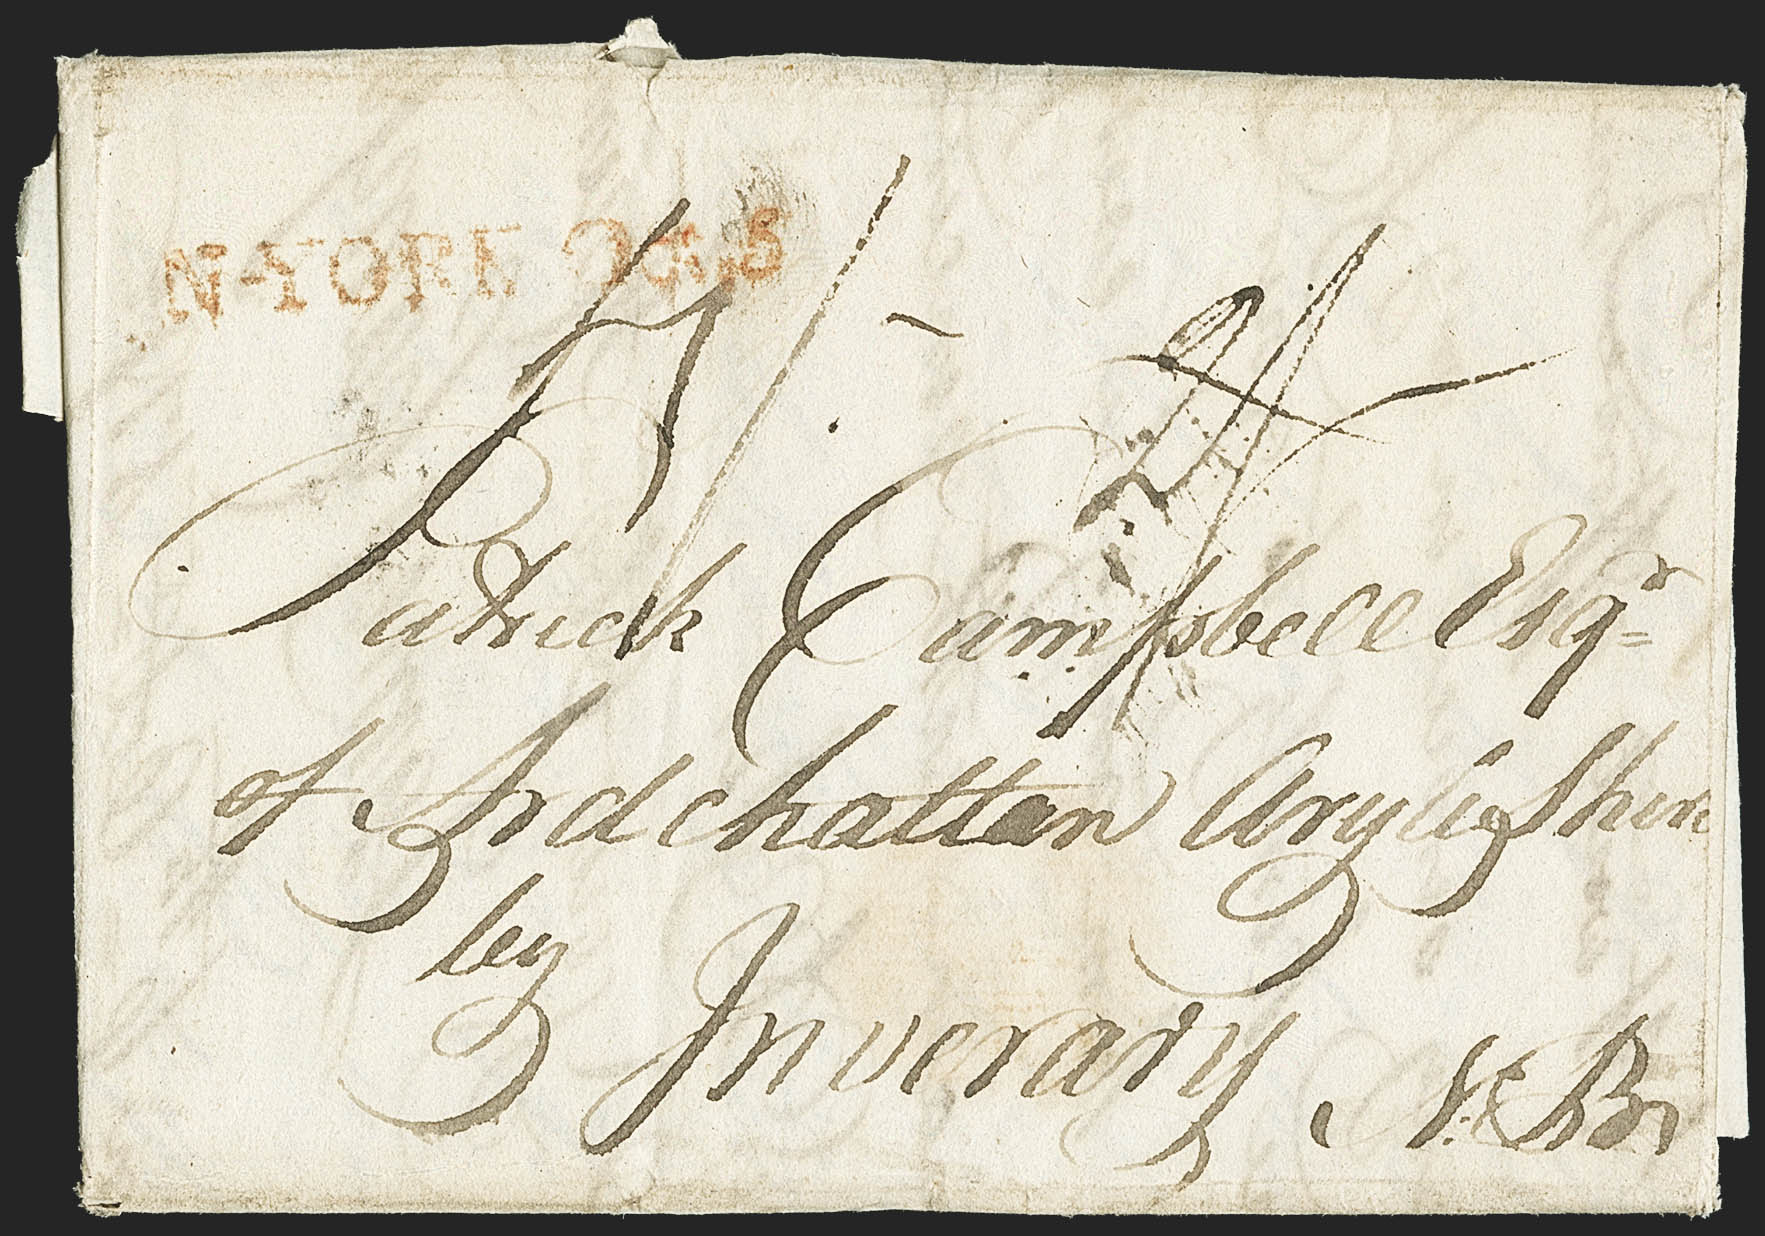 N-YORK Oct 8
1/-
Patrick Campbell Esqr=
of Ardchattan Argyligshire
by Inverary
N: Br